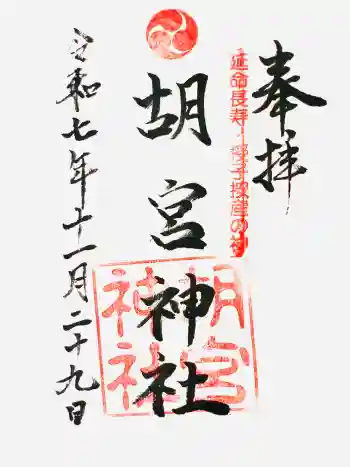 奉拝
延命長寿・授子授産の神
胡宮神社
胡宮神社
令和七年十一月二十九日